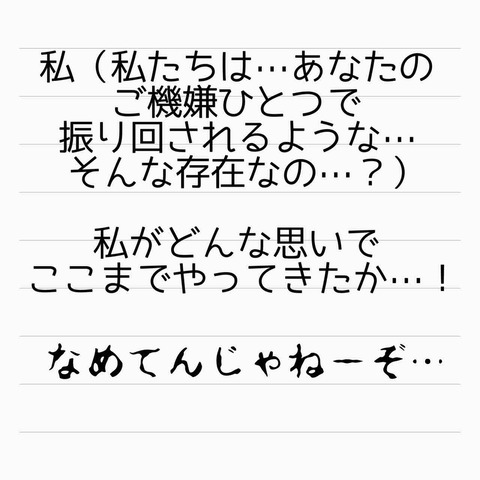 私（私たちは…あなたの
ご機嫌ひとつで
振り回されるような…
そんな存在なの…？）
私がどんな思いで
ここまでやってきたか…！
なめてんじゃねーぞ…